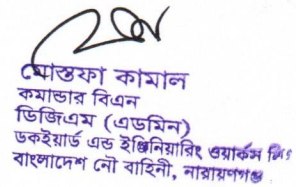 মোস্তফা কামাল
কমান্ডার বিএন
ডিজিএম (এডমিন)
ডকইয়ার্ড এন্ড ইঞ্জিনিয়ারিং ওয়ার্কস লিঃ
বাংলাদেশ নৌ বাহিনী, নারায়ণগঞ্জ